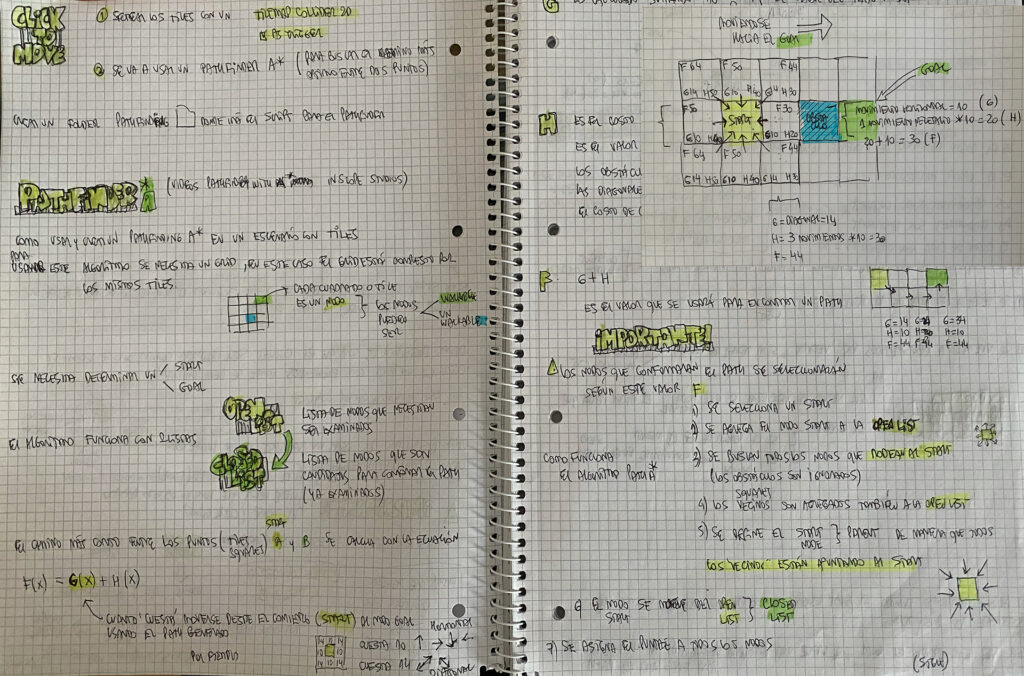 CLICK TO MOVE
① SETEAR LOS TILES CON UN TILEMAP COLLIDER 2D
AS TRIGGER
② SE VA A USAR UN PATHFINDER A* (PARA BUSCAR EL CAMINO MÁS
ENTRE DOS PUNTOS)
CREAR UN FOLDER PATHFINDING DONDE IRÁ EL SCRIPT PARA EL PATHFINDER
PATHFINDER A* (VIDEOS PATHFINDER WITH IN SCOPE STUDIOS)
COMO USAR Y CREAR UN PATHFINDING A* EN UN ESCENARIO CON TILES
PARA
USAR ESTE ALGORITMO SE NECESITA UN GRID, EN ESTE CASO EL GRID ESTÁ COMPUESTO POR
LOS MISMOS TILES.
CADA CUADRADO O TILE
ES UN NODO
LOS NODOS
PUEDEN
SER
WALKABLE
UN
WALKABLE
SE NECESITA DETERMINAR UN START
GOAL
EL ALGORITMO FUNCIONA CON 2 LISTAS
OPEN LIST
LISTA DE NODOS QUE NECESITAN
SER EXAMINADOS
CLOSED LIST
LISTA DE NODOS QUE SON
CANDIDATOS PARA CONFORMAR EL PATH
(YA EXAMINADOS)
START
EL CAMINO MÁS CORTO ENTRE LOS PUNTOS (TILES SQUARES) A Y B SE CALCULA CON LA ECUACIÓN
F(X) = G(X) + H(X)
CUANTO CUESTA MOVERSE DESDE EL COMIENZO (START) AL NODO GOAL
USANDO EL PATH GENERADO
POR EJEMPLO
14 10 14
10 10
14 10 14
CUESTA 10
HORIZONTAL
CUESTA 14
DIAGONAL
G
MOVIENDOSE
HACIA EL GOAL
F 64 F 50 F 44
G14 H50 G10 H40 G14 H30
F50 START F30 OBSTACULO
G10 H40 G10 H20
F 64 F50 F44
G14 H50 G10 H40 G14 H30
GOAL
MOVIMIENTO HORIZONTAL = 10 (G)
1 MOVIMIENTO *10 = 20 (H)
20 + 10 = 30 (F)
G = DIAGONAL = 14
H = 3 MOVIMIENTOS *10 = 30
F = 44
H ES EL COSTO
ES EL VALOR
LOS OBSTÁCU
LAS DIAGONALE
EL COSTO DE
F G + H
ES EL VALOR QUE SE USARÁ PARA ENCONTRAR UN PATH
G=14 G=24 G=34
H=10 H=20 H=10
F=44 F=44 F=44
IMPORTANTE!
LOS NODOS QUE CONFORMARAN EL PATH SE SELECCIONARÁN
SEGÚN ESTE VALOR F
COMO FUNCIONA
EL ALGORITMO PATH A*
1) SE SELECCIONA UN START
2) SE AGREGA EL NODO START A LA OPEN LIST
3) SE BUSCAN TODOS LOS NODOS QUE RODEAN AL START
(LOS OBSTÁCULOS SON IGNORADOS)
SQUARES
4) LOS VECINOS SON AGREGADOS TAMBIÉN A LA OPEN LIST
5) SE DEFINE EL START NODE } PARENT DE MANERA QUE TODOS
LOS VECINOS ESTÁN APUNTANDO AL START
6) EL NODO START SE MUEVE DEL OPEN LIST } CLOSED LIST
7) SE ASIGNA EL PUNTAJE A TODOS LOS NODOS
(SIGUE)